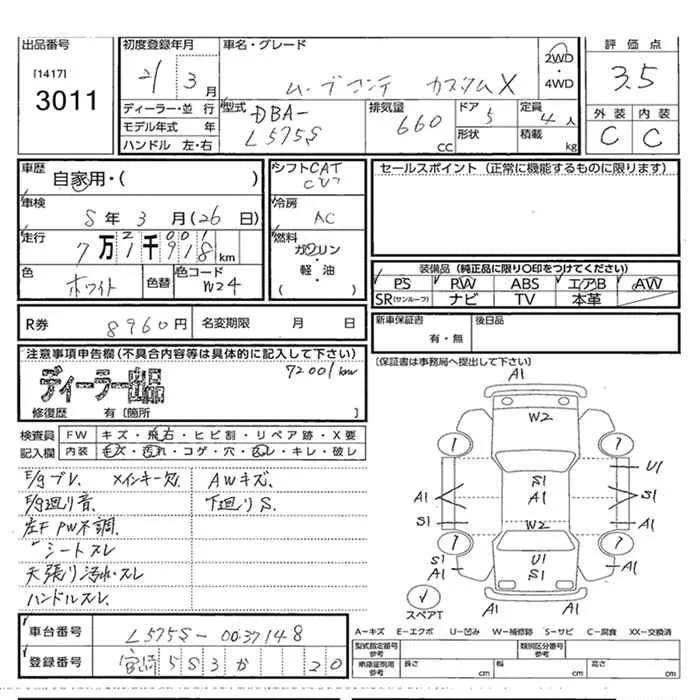 出品番号
[1417]
3011
初度登録年月
21 3月
車名・グレード
ムーブコンテ カスタムX
2WD
・
4WD
評価点
3.5
外装 内装
C C
ディーラー・並行
モデル年式 年
ハンドル 左・右
型式
DBA-
L575S
排気量
660
CC
ドア
5
形状
定員
4人
積載
kg
車歴
自家用・( )
車検
5年 3月(26日)
走行
7万1千918km
色
ホワイト
色替
色コード
W24
シフト CAT
冷房
AC
燃料
ガソリン
・
軽・油
( )
セールスポイント (正常に機能するものに限ります)
装備品 (純正品に限り〇印をつけてください)
PS PW ABS エアB AW
SR(サンルーフ) ナビ TV 本革
R券 8960円 名変期限 月 日
新車保証書
有・無
後日品
注意事項申告欄(不具合内容等は具体的に記入して下さい)
72001km
ディーラー出品
修復歴 有〔箇所 〕
〔保証書は事務局へ提出して下さい〕
検査員 FW キズ・飛石・ヒビ割・リペア跡・X要
記入欄 内装 キズ・汚れ・コゲ・穴・スレ・キレ・破レ
E/gブレ. メインキー欠. AWキズ.
E/g廻り音. 下廻りS.
左F PW不調.
〃シートスレ
天張り汚れ・スレ
ハンドルスレ.
A1
W2
S1
A1
W2
U1
S1
A1
S1
S1
A1
U1
S1
A1
A1
A1
スペアT
A1
A1
車台番号 L575S-0037148
登録番号 宮崎 583 か 20
A-キズ E-エクボ U-凹み W-補修跡 S-サビ C-腐食 XX-交換済
型式指定番号
参考
類別区分番号
参考
車庫証明用
参考
長さ cm
幅 cm
高さ cm